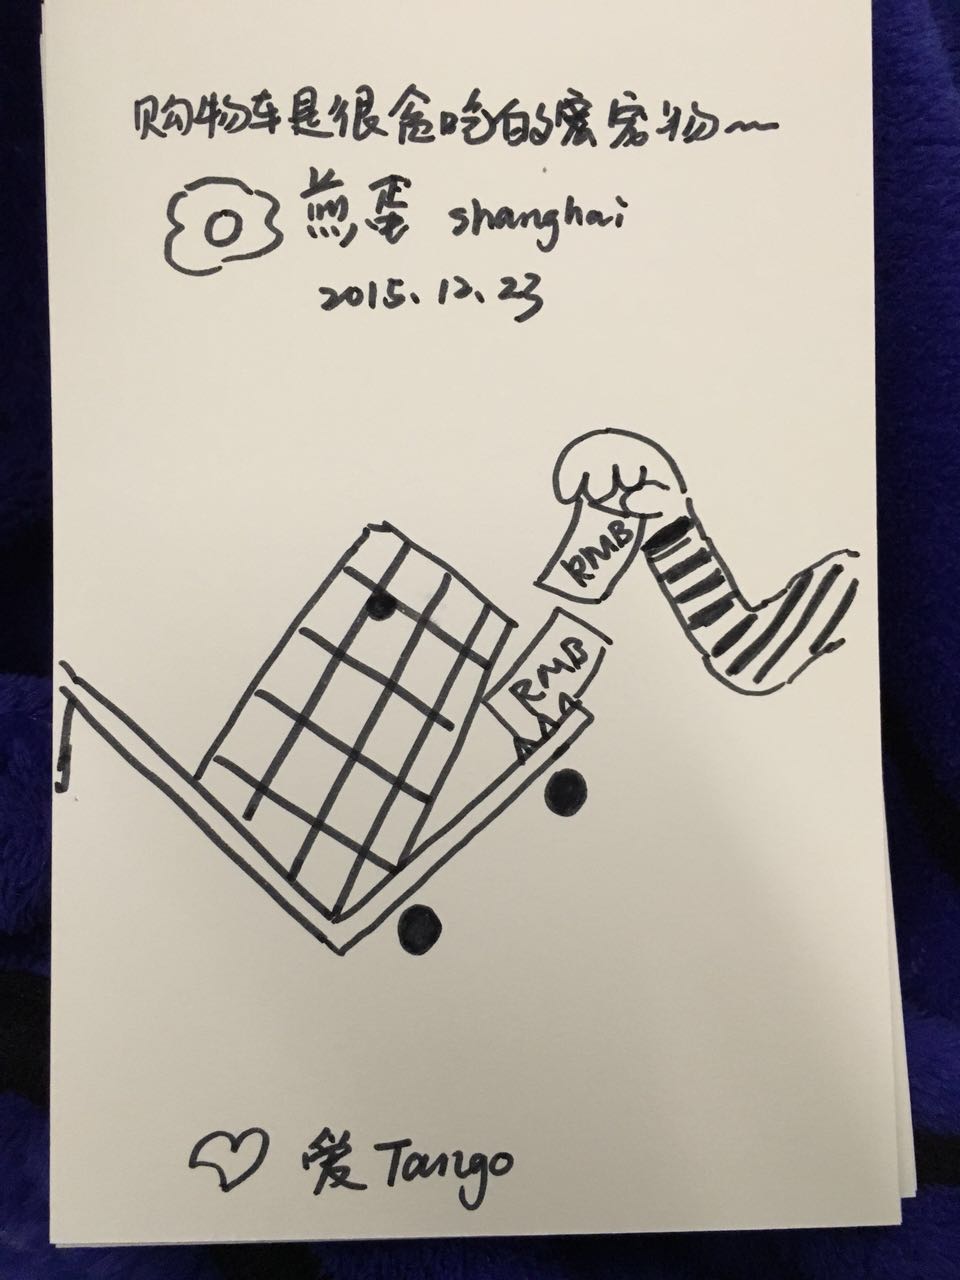 购物车是很贪吃的宠物~
煎蛋 shanghai
2015.12.23
RMB
RMB
爱Tango